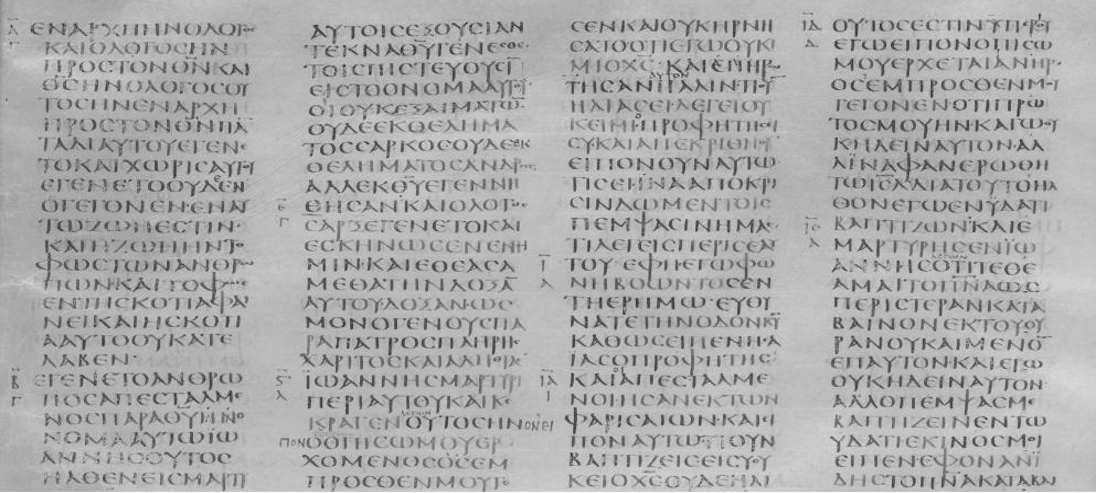 ΕΝΑΡΧΗΗΝΟΛΟΓΟϹ
ΚΑΙΟΛΟΓΟϹΗΝ
ΠΡΟϹΤΟΝΘ̅Ν̅ΚΑΙ
Θ̅Ϲ̅ΗΝΟΛΟΓΟϹΟΥ
ΤΟϹΗΝΕΝΑΡΧΗ
ΠΡΟϹΤΟΝΘ̅Ν̅ΠΑ
ΤΑΔΙΑΥΤΟΥΕΓΕΝΕ
ΤΟΚΑΙΧΩΡΙϹΑΥΤΟΥ
ΕΓΕΝΕΤΟΟΥΔΕΝ
ΟΓΕΓΟΝΕΝ·ΕΝΑΥ
ΤΩΖΩΗΕϹΤΙΝ·
ΚΑΙΗΖΩΗΗΝΤΟ
ΦΩϹΤΩΝΑΝΘΡΩ
ΠΩΝΚΑΙΤΟΦΩϹ
ΕΝΤΗϹΚΟΤΙΑΦΑΙ
ΝΕΙΚΑΙΗϹΚΟΤΙ
ΑΑΥΤΟΟΥΚΑΤΕ
ΛΑΒΕΝ·
ΕΓΕΝΕΤΟΑΝΘΡΩ
ΠΟϹΑΠΕϹΤΑΛΜΕ
ΝΟϹΠΑΡΑΘ̅Υ̅ΗΝΟ
ΝΟΜΑΑΥΤΩΪΩ
ΑΝΝΗϹΟΥΤΟϹ
ΗΛΘΕΝΕΙϹΜΑΡΤΥ
ΑΥΤΟΙϹΕΞΟΥϹΙΑΝ
ΤΕΚΝΑΘ̅Υ̅ΓΕΝΕϹΘΑΙ
ΤΟΙϹΠΙϹΤΕΥΟΥϹΙ
ΕΙϹΤΟΟΝΟΜΑΑΥΤΟΥ
ΟΙΟΥΚΕΞΑΙΜΑΤΩ
ΟΥΔΕΕΚΘΕΛΗΜΑ
ΤΟϹϹΑΡΚΟϹΟΥΔΕΕΚ
ΘΕΛΗΜΑΤΟϹΑΝΔΡΟϹ
ΑΛΛΕΚΘ̅Υ̅ΕΓΕΝΝΗ
ΘΗϹΑΝΚΑΙΟΛΟΓΟϹ
ϹΑΡΞΕΓΕΝΕΤΟΚΑΙ
ΕϹΚΗΝΩϹΕΝΕΝΗ
ΜΙΝ·ΚΑΙΕΘΕΑϹΑ
ΜΕΘΑΤΗΝΔΟΞΑ
ΑΥΤΟΥΔΟΞΑΝΩϹ
ΜΟΝΟΓΕΝΟΥϹΠΑ
ΡΑΠΑΤΡΟϹΠΛΗΡΗϹ
ΧΑΡΙΤΟϹΚΑΙΑΛΗΘΕΙΑϹ
ΪΩΑΝΝΗϹΜΑΡΤΥΡΙ
ΠΕΡΙΑΥΤΟΥΚΑΙΚΕ
ΚΡΑΓΕΝΟΥΤΟϹΗΝΟΝΕΙ
ΠΟΝΟΟΠΙϹΩΜΟΥΕΡ
ΧΟΜΕΝΟϹΟϹΕΜ
ΠΡΟϹΘΕΝΜΟΥΓΕ
ϹΕΝΚΑΙΟΥΚΗΡΝΗ
ϹΑΤΟΟΤΙΕΓΩΟΥΚΙ
ΜΙΟΧ̅Ϲ̅·ΚΑΙΕΠΗΡΩ
ΤΗϹΑΝΠΑΛΙΝΤΙΟΥ
ΗΛΙΑϹΕΙΛΕΓΕΙΟΥ
ΚΕΙΜΙ·ΠΡΟΦΗΤΗϹΕΙ
ϹΥΚΑΙΑΠΕΚΡΙΘΗΟΥ
ΕΙΠΟΝΟΥΝΑΥΤΩ
ΤΙϹΕΙΪΝΑΑΠΟΚΡΙ
ϹΙΝΔΩΜΕΝΤΟΙϹ
ΠΕΜΨΑϹΙΝΗΜΑϹ
ΤΙΛΕΓΕΙϹΠΕΡΙϹΕΑΥ
ΤΟΥ·ΕΦΗΕΓΩΦΩ
ΝΗΒΟΩΝΤΟϹΕΝ
ΤΗΕΡΗΜΩ·ΕΥΘΥ
ΝΑΤΕΤΗΝΟΔΟΝΚ̅Υ̅
ΚΑΘΩϹΕΙΠΕΝΗϹΑ
ΪΑϹΟΠΡΟΦΗΤΗϹ
ΚΑΙΑΠΕϹΤΑΛΜΕ
ΝΟΙΗϹΑΝΕΚΤΩΝ
ΦΑΡΙϹΑΙΩΝ·ΚΑΙΕΙ
ΠΟΝΑΥΤΩΤΙΟΥΝ
ΒΑΠΤΙΖΕΙϹΕΙϹΥΟΥ
ΚΕΙΟΧ̅Ϲ̅ΟΥΔΕΗΛΙ
ΟΥΤΟϹΕϹΤΙΝΥΠΕΡΟΥ
ΕΓΩΕΙΠΟΝΟΠΙϹΩ
ΜΟΥΕΡΧΕΤΑΙΑΝΗΡ
ΟϹΕΜΠΡΟϹΘΕΝΜΟΥ
ΓΕΓΟΝΕΝΟΤΙΠΡΩ
ΤΟϹΜΟΥΗΝ·ΚΑΓΩΟΥ
ΚΗΔΕΙΝΑΥΤΟΝ·ΑΛ
ΛΪΝΑΦΑΝΕΡΩΘΗ
ΤΩΙ̅Η̅Λ̅ΔΙΑΤΟΥΤΟΗΛ
ΘΟΝΕΓΩΕΝΥΔΑΤΙ
ΒΑΠΤΙΖΩΝΚΑΙΕ
ΜΑΡΤΥΡΗϹΕΝΪΩ
ΑΝΝΗϹΟΤΙΤΕΘΕ
ΑΜΑΙΤΟΠ̅Ν̅ΑΩϹ
ΠΕΡΙϹΤΕΡΑΝΚΑΤΑ
ΒΑΙΝΟΝΕΚΤΟΥΟΥ
ΡΑΝΟΥΚΑΙΜΕΝΟ
ΕΠΑΥΤΟΝ·ΚΑΙΕΓΩ
ΟΥΚΗΔΕΙΝΑΥΤΟΝ·
ΑΛΛΟΠΕΜΨΑϹΜΕ
ΒΑΠΤΙΖΕΙΝΕΝΤΩ
ΥΔΑΤΙΕΚΙΝΟϹΜΟΙ
ΕΙΠΕΝΕΦΟΝΑΝΪ
ΔΗϹΤΟΠ̅Ν̅ΑΚΑΤΑΒΑΙ